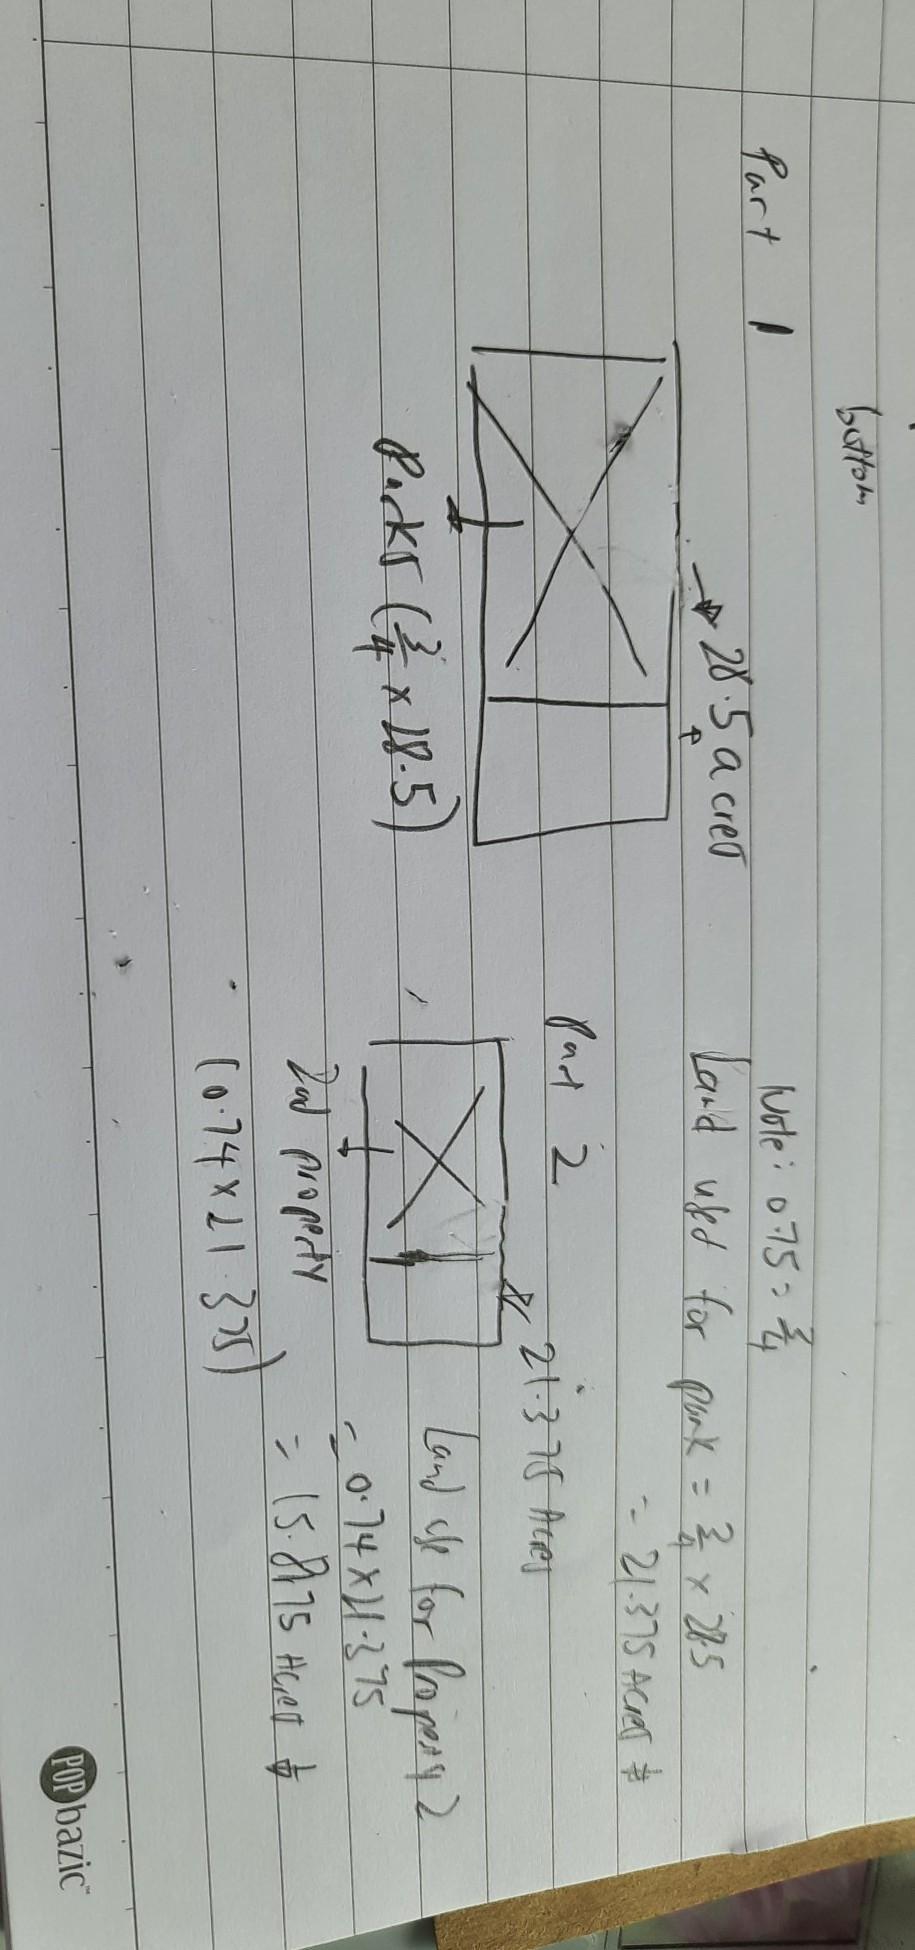 bottom
Part 1
Note: 0.75 = 3/4
→ 28.5 acres
Land used for park = 3/4 × 28.5
= 21.375 Acres #
Parks (3/4 × 28.5)
Part 2
21.375 Acres
Land use for Property 2
= 0.74 × 21.375
2nd property
= 15.8175 Acres #
(0.74 × 21.375)
POP bazic™